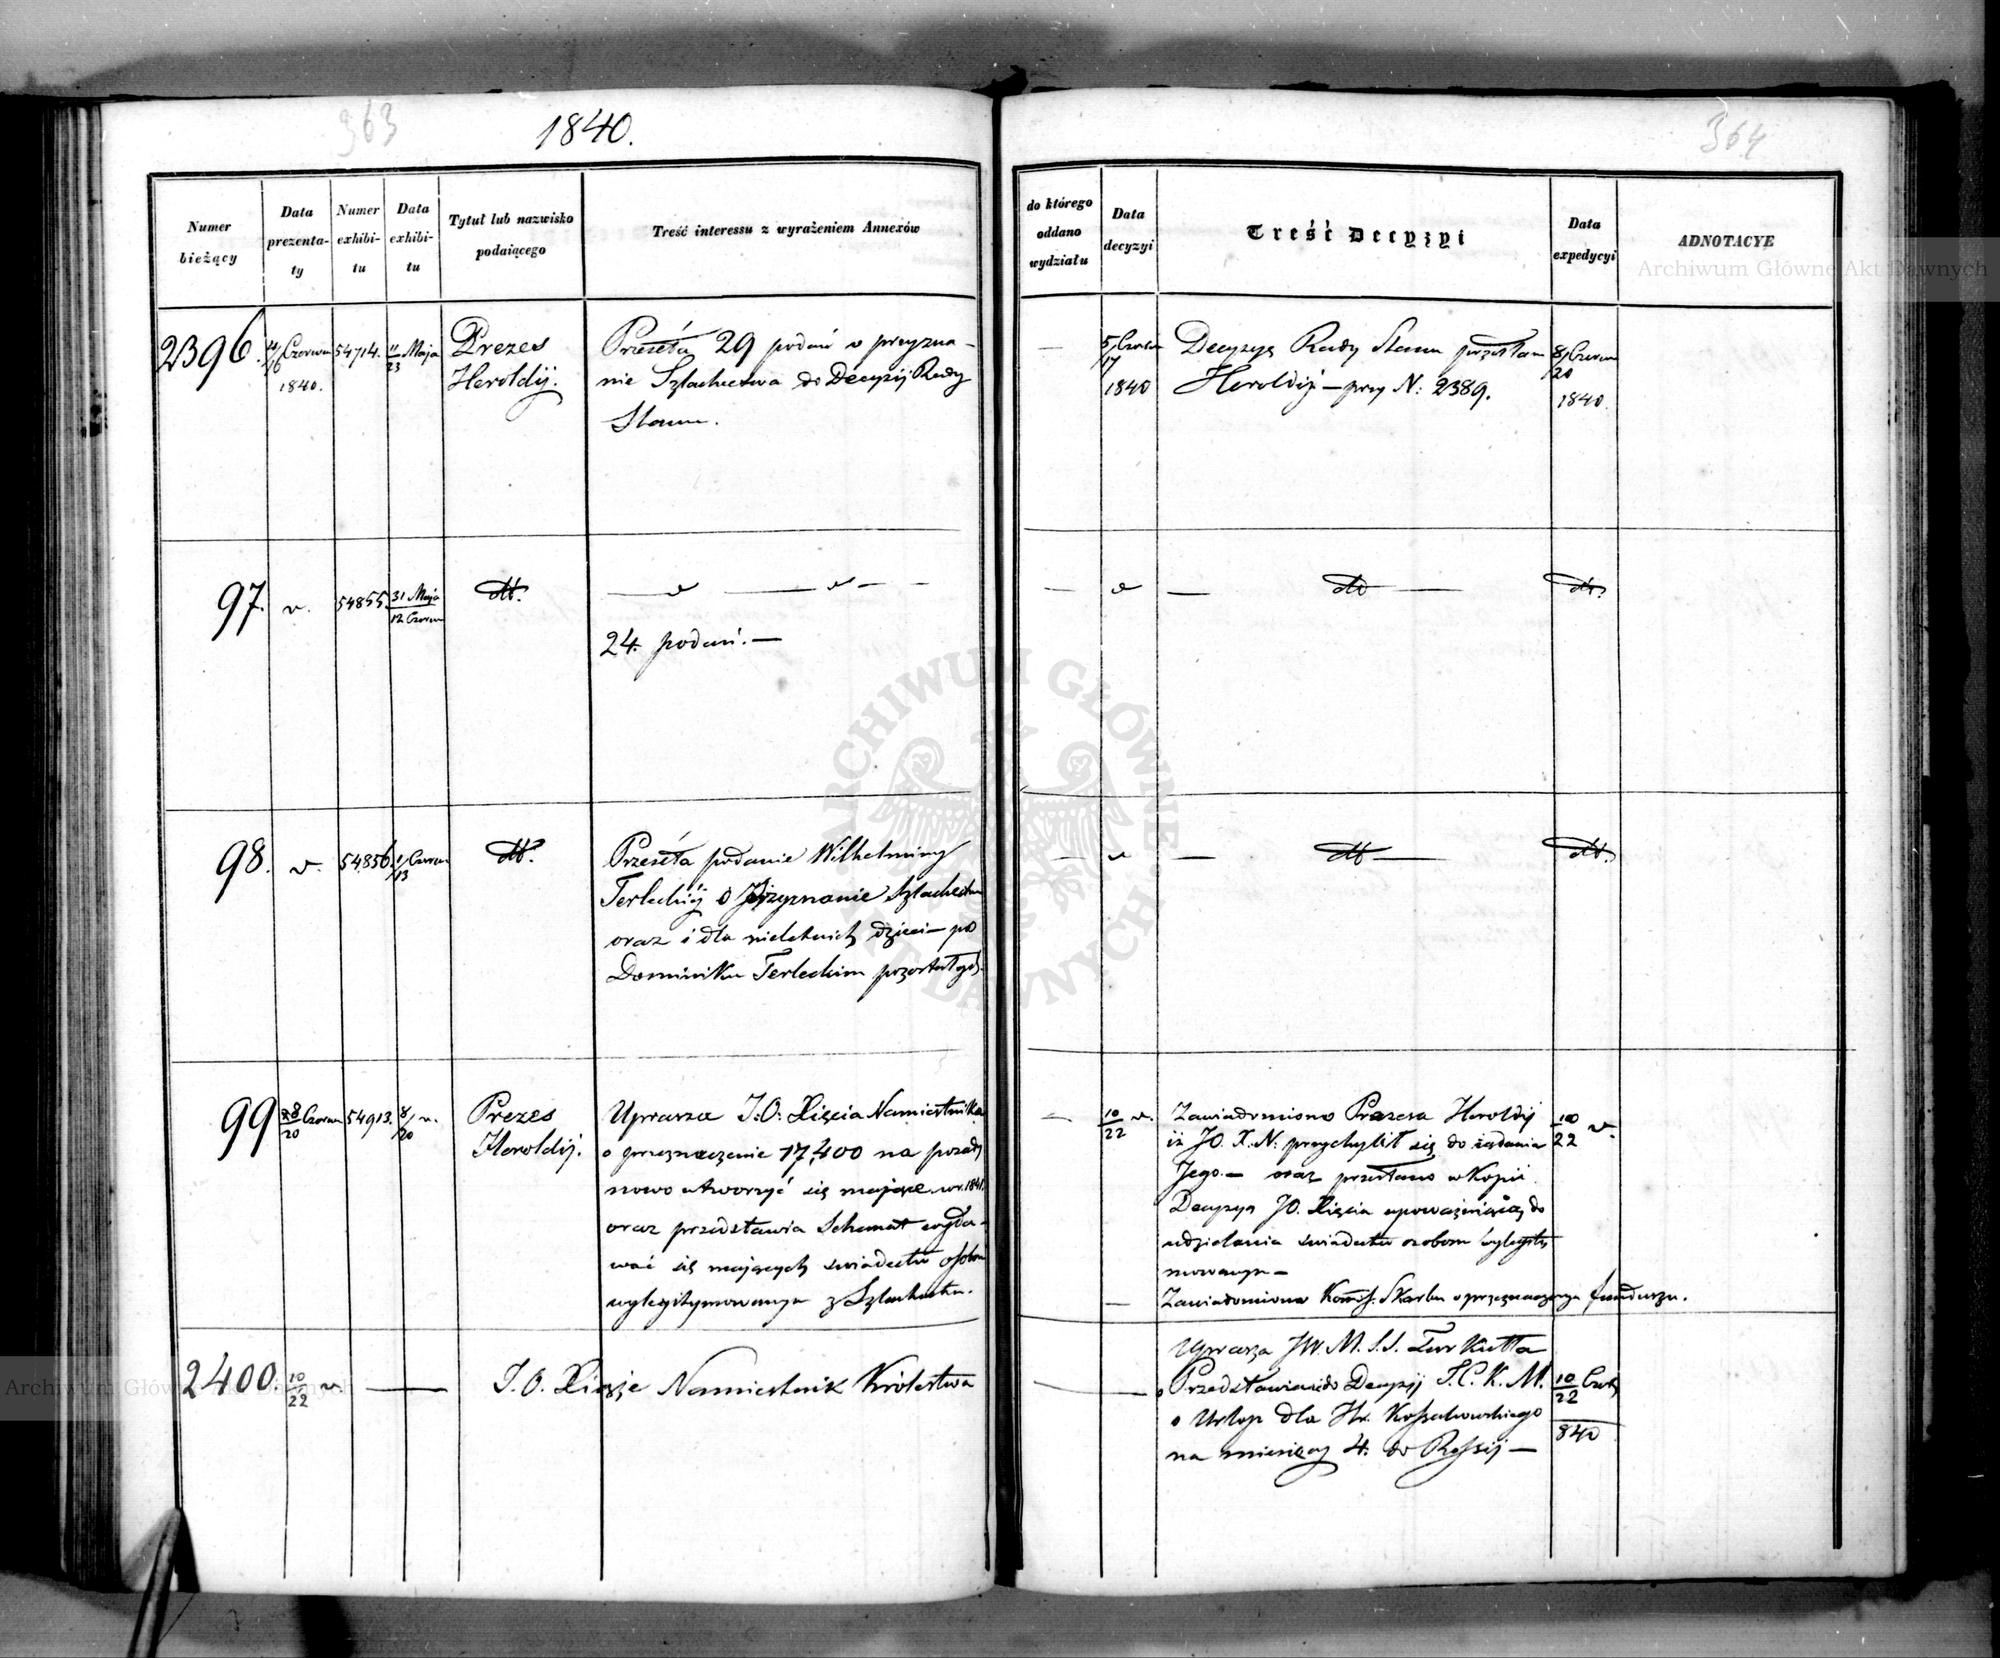 363
1840.
364
Numer bieżący
Data prezentaty
Numer exhibitu
Data exhibitu
Tytuł lub nazwisko podaiącego
Treść interessu z wyrażeniem Annexów
do którego oddano wydziału
Data decyzyi
Treść Decyzyi
Data expedycyi
ADNOTACYE
Archiwum Główne Akt Dawnych
2396.
Czerwca
1840.
54714.
11/23 Maja
Prezes
Heroldij.
Przesyła 29 podań o przyzna-
nie Szlachectwa do Decyzij Rady
Stanu.
5/17 Czerwca
1840
Decyzye Rady Stanu przesłano
Heroldij – przy N: 2389.
8/20 Czerwca
1840.
97.
v.
54855.
31 Maja
12 Czerwca
dt.
— v — v — -
24. podań. —
— v —
do —
dt.
98.
v.
54856.
1/13 Czerwca
dt.
Przesyła podanie Wilhelminy
Terleckiéj o przyznanie Szlachectwa
oraz i dla nieletnich dzieci – po
Dominiku Terleckim pozostałych.
— v —
dt —
dt.
99
8/20 Czerwca
54913.
8/20 v.
Prezes
Heroldij.
Uprasza J:O: Xięcia Namiestnika
o przeznaczenie 17,400 na posady
nowo utworzyć się mające w r. 1841.
oraz przedstawia Schemat wyda-
wać się mających świadectw osobom
wylegitymowanym z Szlachectwa.
10/22 v.
Zawiadomiono Prezesa Heroldij
iż JO. X. N: przychylił się do żądania
Jego. – oraz przesłano w kopii
Decyzya JO. Xięcia upoważniającą do
udzielania świadectw osobom wylegity
mowanym –
Zawiadomiono Komis. Skarbu o przeznaczeniu funduszu.
10/22 v.
2400.
10/22 v.
J. O. Xiąże Namiestnik Królestwa
Uprasza JW. M. S. S. Turkułła
o Przedstawienie do Decyzij J. C. K. M.
o Urlop dla Hr. Kossakowskiego
na miesięcy 4. do Rossij –
10/22 Czerw
840
ARCHIWUM GŁÓWNE AKT DAWNYCH
Archiwum Główne Akt Dawnych